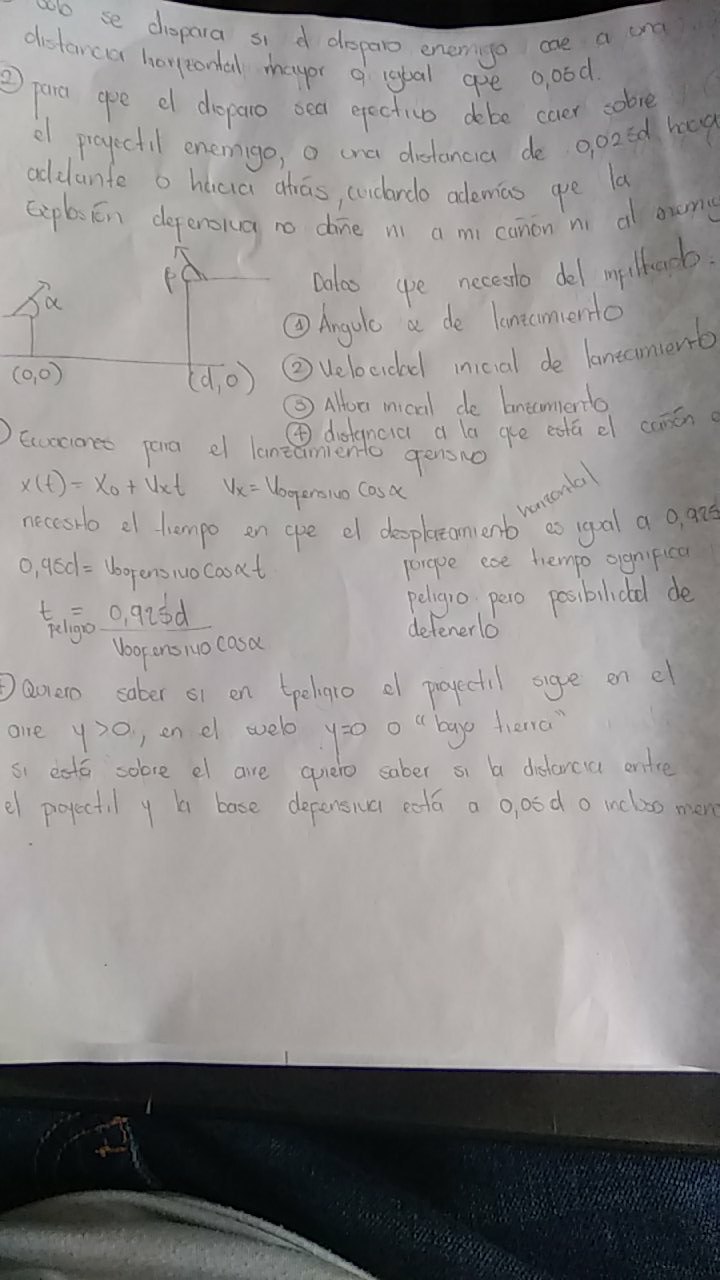 solo se dispara si el disparo enemigo cae a una
distancia horizontal mayor o igual que 0,05d.
② para que el disparo sea efectivo debe caer sobre
el proyectil enemigo, o una distancia de 0,025d hacia
adelante o hacia atrás, cuidando además que la
Explosión defensiva no dañe ni a mi cañón ni al
Datos que necesito del infiltrado.
① Ángulo α de lanzamiento
② Velocidad inicial de lanzamiento
③ Altura inicial de lanzamiento
④ distancia a la que está el cañón
α
β
(0,0)
(d,0)
Ecuaciones para el lanzamiento ofensivo
x(t) = X₀ + Vxt Vx = Voofensivo Cosα
necesito el tiempo en que el desplazamiento horizontal es igual a 0,925
0,95d = Voofensivo Cosα t
porque ese tiempo significa
peligro pero posibilidad de
detenerlo
t peligro = 0,925d / Voofensivo Cosα
Quiero saber si en tpeligro el proyectil sigue en el
aire y>0, en el suelo y=0 o "bajo tierra"
si está sobre el aire quiero saber si la distancia entre
el proyectil y la base defensiva está a 0,05d o incluso